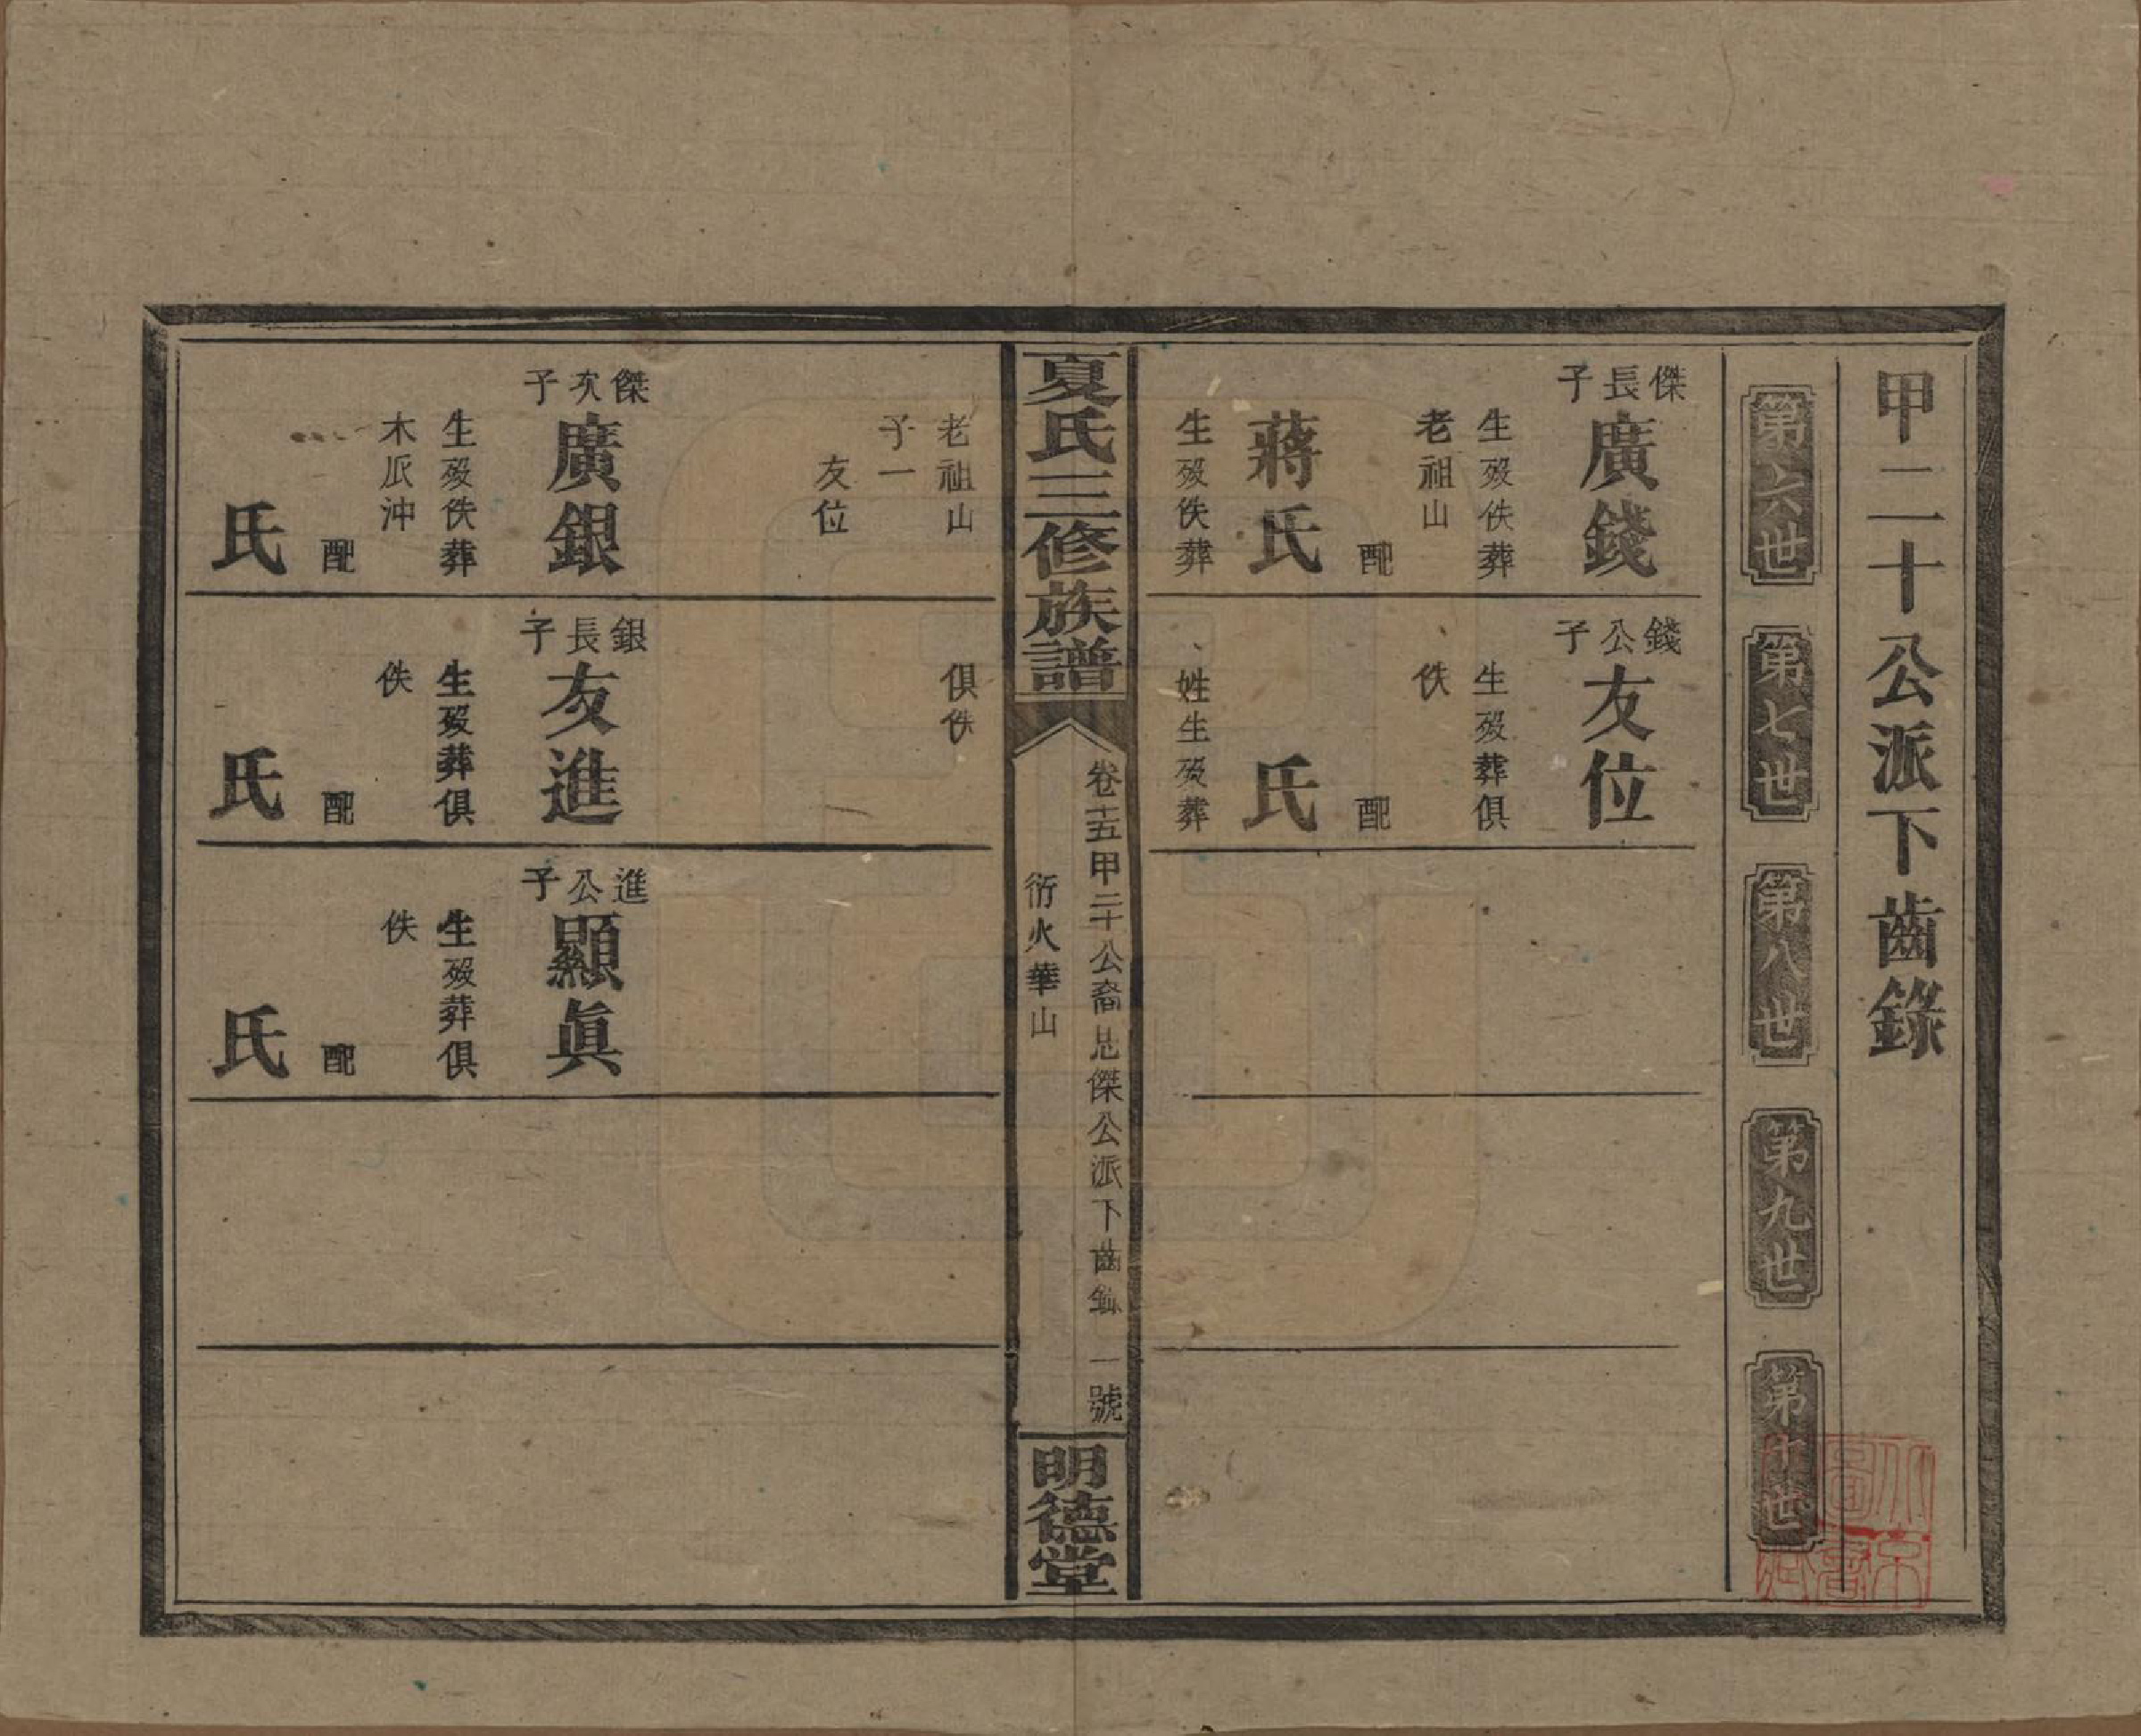 甲二十公派下齒錄
第六世
第七世
第八世
第九世
第十世
傑長子
廣錢
生殁佚葬
老祖山
配
蔣氏
生殁佚葬
錢公子
友位
生殁葬俱
佚
配
氏
姓生殁葬
夏氏三修族譜
卷十五甲二十公裔 傑公派下齒錄 一號
衍火華山
明德堂
老祖山
子一
友位
傑次子
廣銀
生殁佚葬
木瓜沖
配
氏
俱佚
銀長子
友進
生殁葬俱
佚
配
氏
進公子
顯眞
生殁葬俱
佚
配
氏